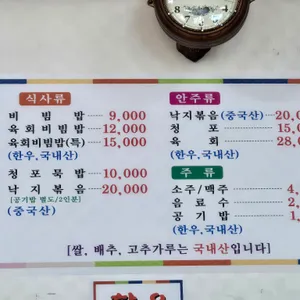 식사류
비 빔 밥 ---- 9,000
육회비빔밥 -- 12,000
육회비빔밥(특) -- 15,000
(한우,국내산)
청 포 묵 밥 -- 10,000
낙 지 볶 음 -- 20,000
[공기밥 별도/2인분]
(중국산)
안주류
낙지볶음(중국산)---
청 포 ----
육 회 ----
(한우,국내산)
주 류
소주/맥주 ----
음 료 수 ----
공 기 밥 ----
(한우,국내산)
[쌀, 배추, 고추가루는 국내산입니다]